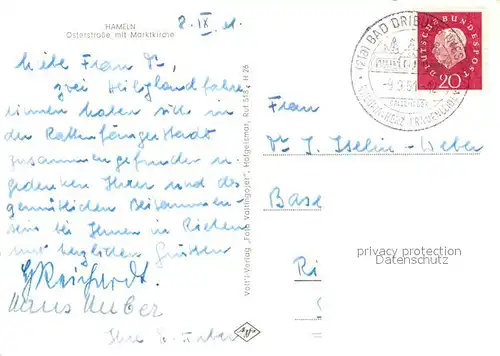 HAMELN
Osterstraße mit Marktkirche
8. IX 61.
Liebe Frau Dr.,
zwei Heiligland fahre-
rinnen haben sich in
der Rattenfängerstadt
zusammengefunden u.
gedenken Ihrer und des
gemütlichen Beisammen-
sein bei Ihnen in Riehen
mit herzlichen Grüssen
G Reichardt.
Hans Huber
Ihre E. Huber
Volt'l-Verlag „Foto Hofgeismar, Ruf 518, H 26
BAD DRIBURG
-9.9.61
DEUTSCHE BUNDESPOST
20
Frau
Dr. I. Iselin-Weber
Base
Ri
privacy protection
Datenschutz